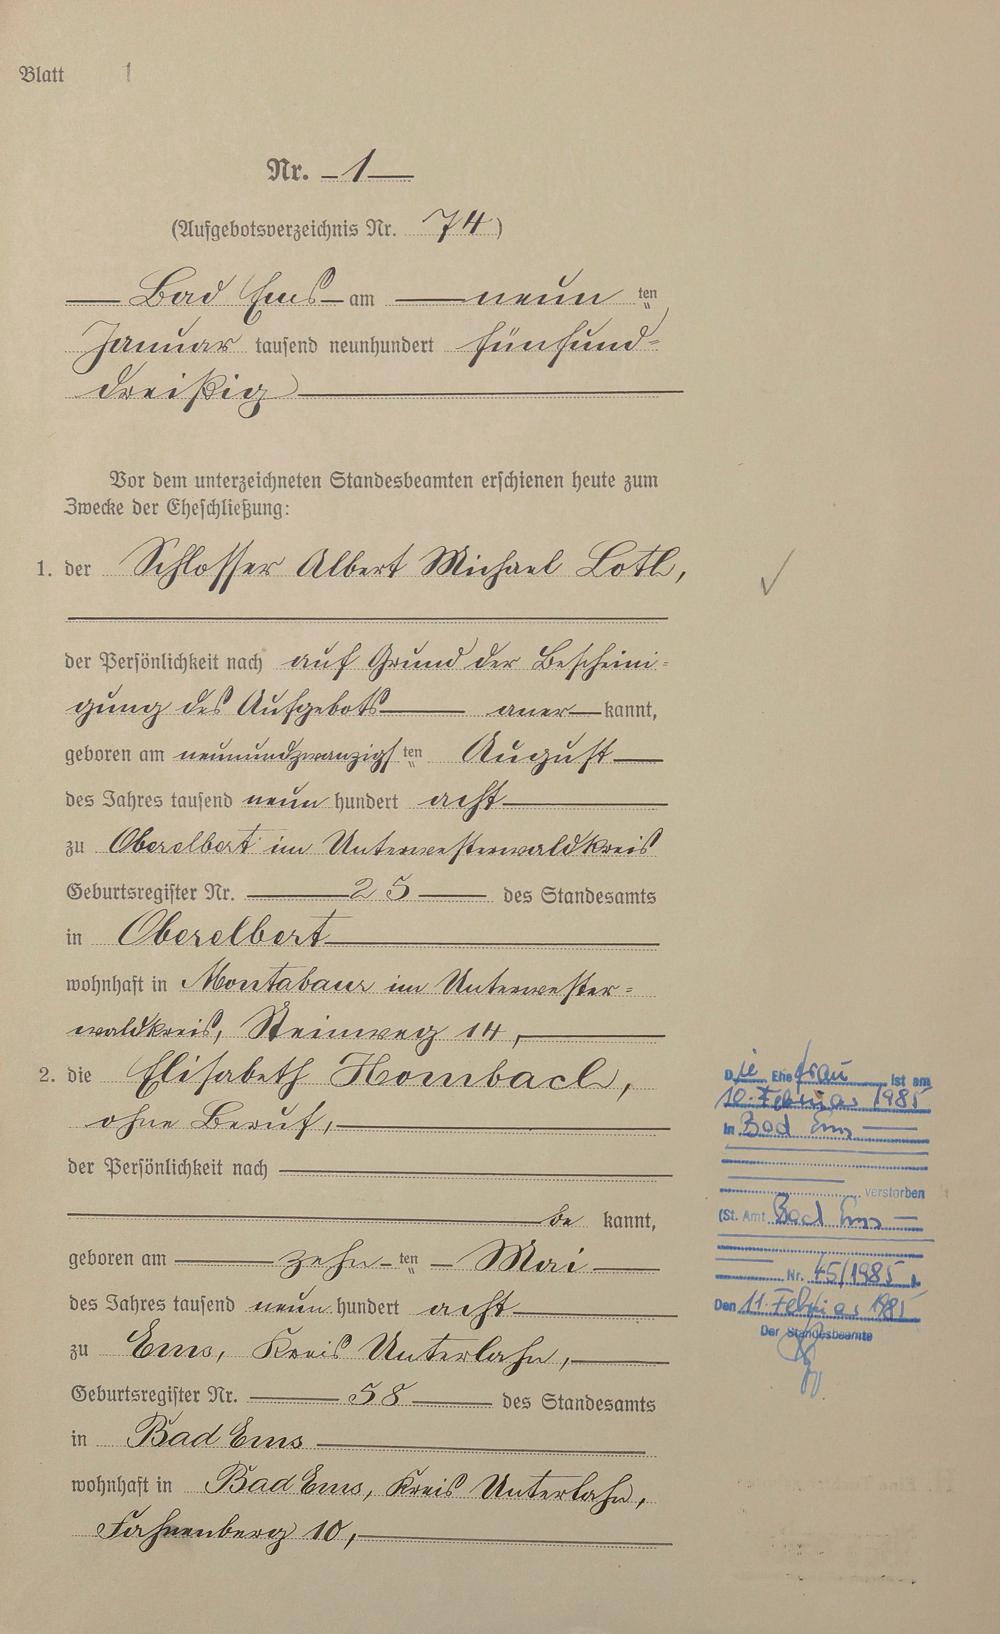 Blatt 1
Nr. 1
(Aufgebotsverzeichnis Nr. 74)
Bad Ems am neun ten
Januar tausend neunhundert fünfund-
dreißig
Vor dem unterzeichneten Standesbeamten erschienen heute zum
Zwecke der Eheschließung:
1. der Schlosser Albert Michael Loth,
der Persönlichkeit nach auf Grund der Bescheini-
gung des Aufgebots aner kannt,
geboren am neunundzwanzigs ten August
des Jahres tausend neun hundert acht
zu Oberelbert im Unterwesterwaldkreis
Geburtsregister Nr. 25 des Standesamts
in Oberelbert
wohnhaft in Montabaur im Unterwester-
waldkreis, Steinweg 14,
2. die Elisabeth Hombach,
ohne Beruf,
der Persönlichkeit nach
be kannt,
geboren am zehn ten Mai
des Jahres tausend neun hundert acht
zu Ems, Kreis Unterlahn,
Geburtsregister Nr. 58 des Standesamts
in Bad Ems
wohnhaft in Bad Ems, Kreis Unterlahn,
Fahnenberg 10,
Die Ehefrau ist am
10. Februar 1985
in Bad Ems
verstorben
(St. Amt Bad Ems
Nr. 45/1985
Den 11. Februar 1985
Der Standesbeamte